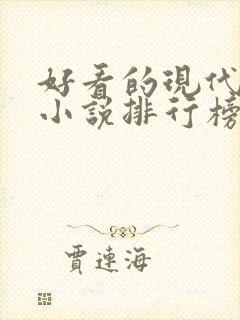 好看的現代
小說排行榜
賈連海